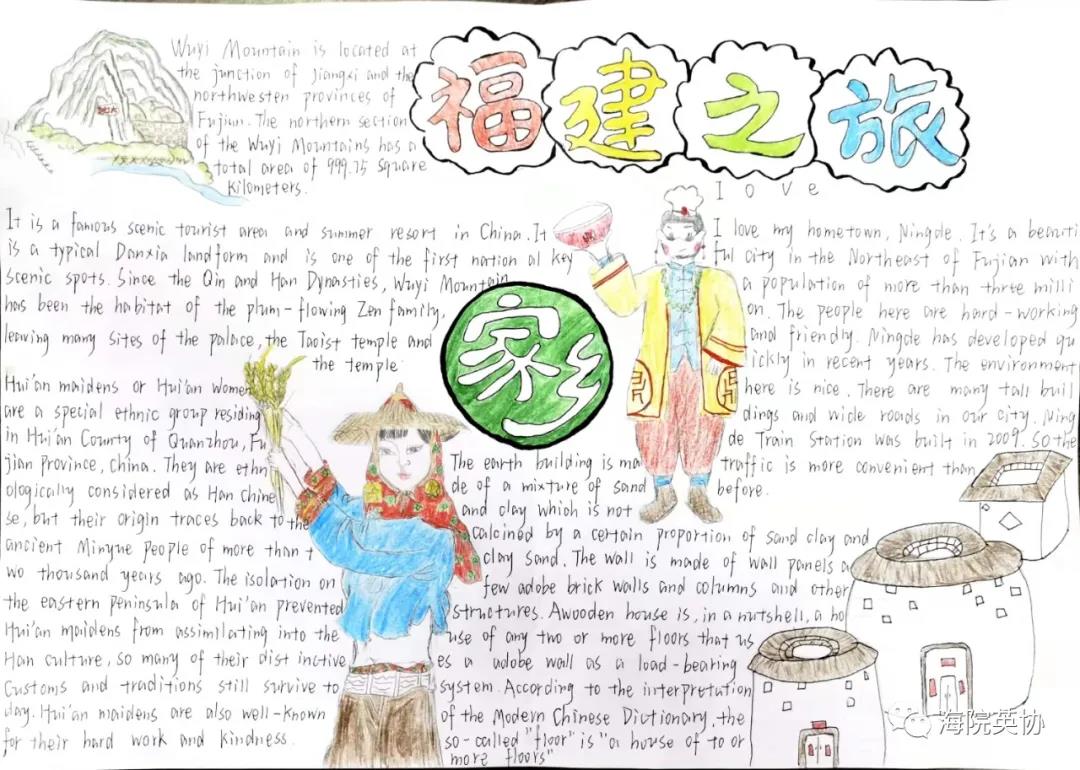 福建之旅
Wuyi Mountain is located at
the junction of jiangxi and the
northwesten provinces of
Fujian. The northern section
of the Wuyi Mountains has a
total area of 999.75 square
kilometers.
It is a famous scenic tourist area and summer resort in China. It
is a typical Danxia landform and is one of the first nation al key
scenic spots. Since the Qin and Han Dynasties, Wuyi Mountain
has been the habitat of the plum-flowing Zen family,
leaving many sites of the palace, the Taoist temple and
the temple.
Hui'an maidens or Hui'an Women
are a special ethnic group residing
in Hui'an County of Quanzhou, Fu
jian province, China. They are ethn
ologically considered as Han Chine
se, but their origin traces back to the
ancient Minyue people of more than t
wo thousand years ago. The isolation on
the eastern peninsula of Hui'an prevented
Hui'an maidens from assimilating into the
Han culture, so many of their dist inctive
customs and traditions still survive to
day. Hui'an maidens are also well-known
for their hard work and kindness.
家乡
I love
I love my hometown, Ningde. It's a beauti
ful city in the Northeast of Fujian with
a population of more than three milli
on. The people here are hard-working
and friendly. Ningde has developed qu
ickly in recent years. The environment
here is nice. There are many tall buil
dings and wide roads in our city. Ning
de Train Station was built in 2009. So the
traffic is more convenient than
before.
The earth building is ma
de of a mixture of sand
and clay which is not
calcined by a certain proportion of sand clay and
clay sand. The wall is made of wall panels a
few adobe brick walls and columns and other
structures. Awooden house is, in a nutshell, a ho
use of any two or more floors that us
es a adobe wall as a load-bearing
system. According to the interpretation
of the Modern Chinese Dictionary, the
so-called "floor" is "a house of to or
more floors"
海院英协